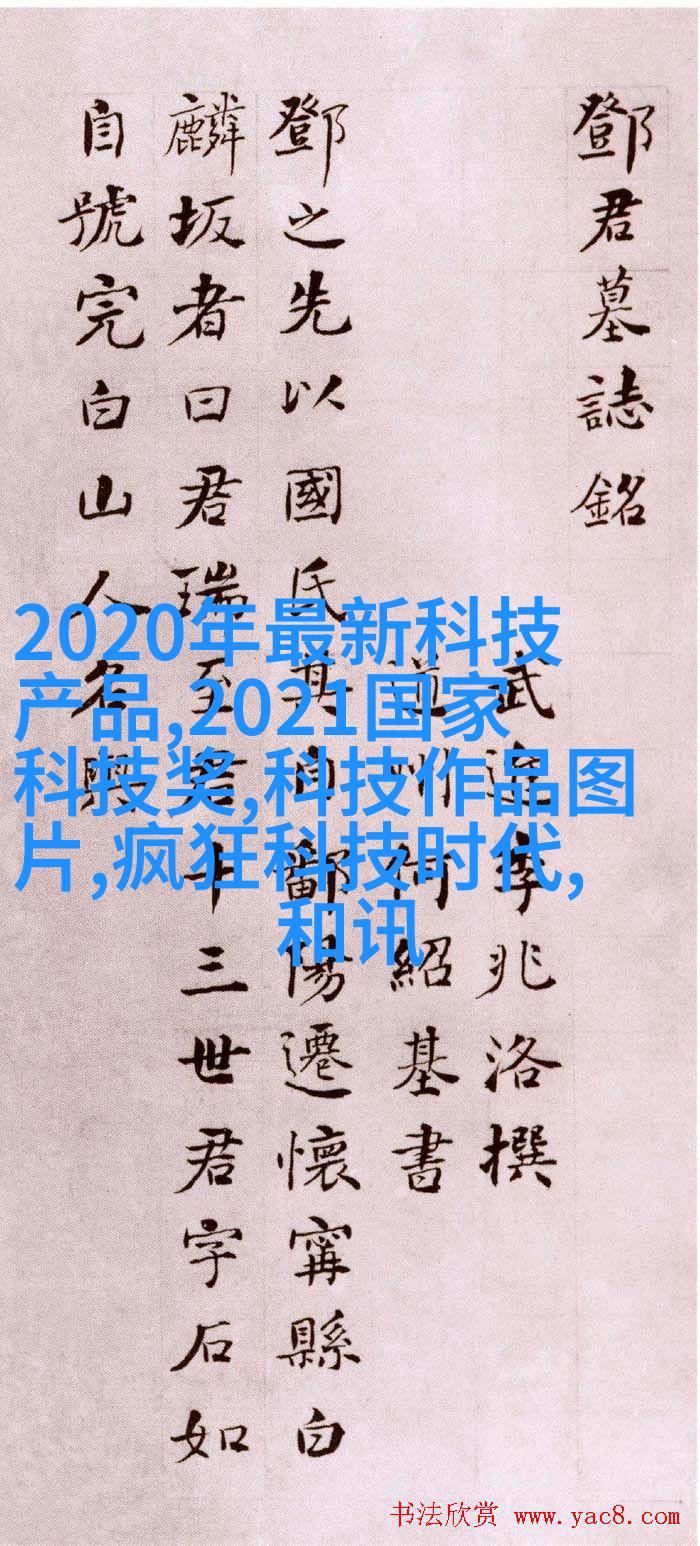 鄧君墓誌銘
武進李兆洛撰
道州何紹基書
鄧之先以國氏其自鄱陽遷懷寗縣白
麟坂者曰君瑞至君十三世君字石如
自號完白山人名
2020年最新科技
产品,2021国家
科技奖,科技作品图
片,疯狂科技时代,
和讯
书法欣赏 www.yac8.com